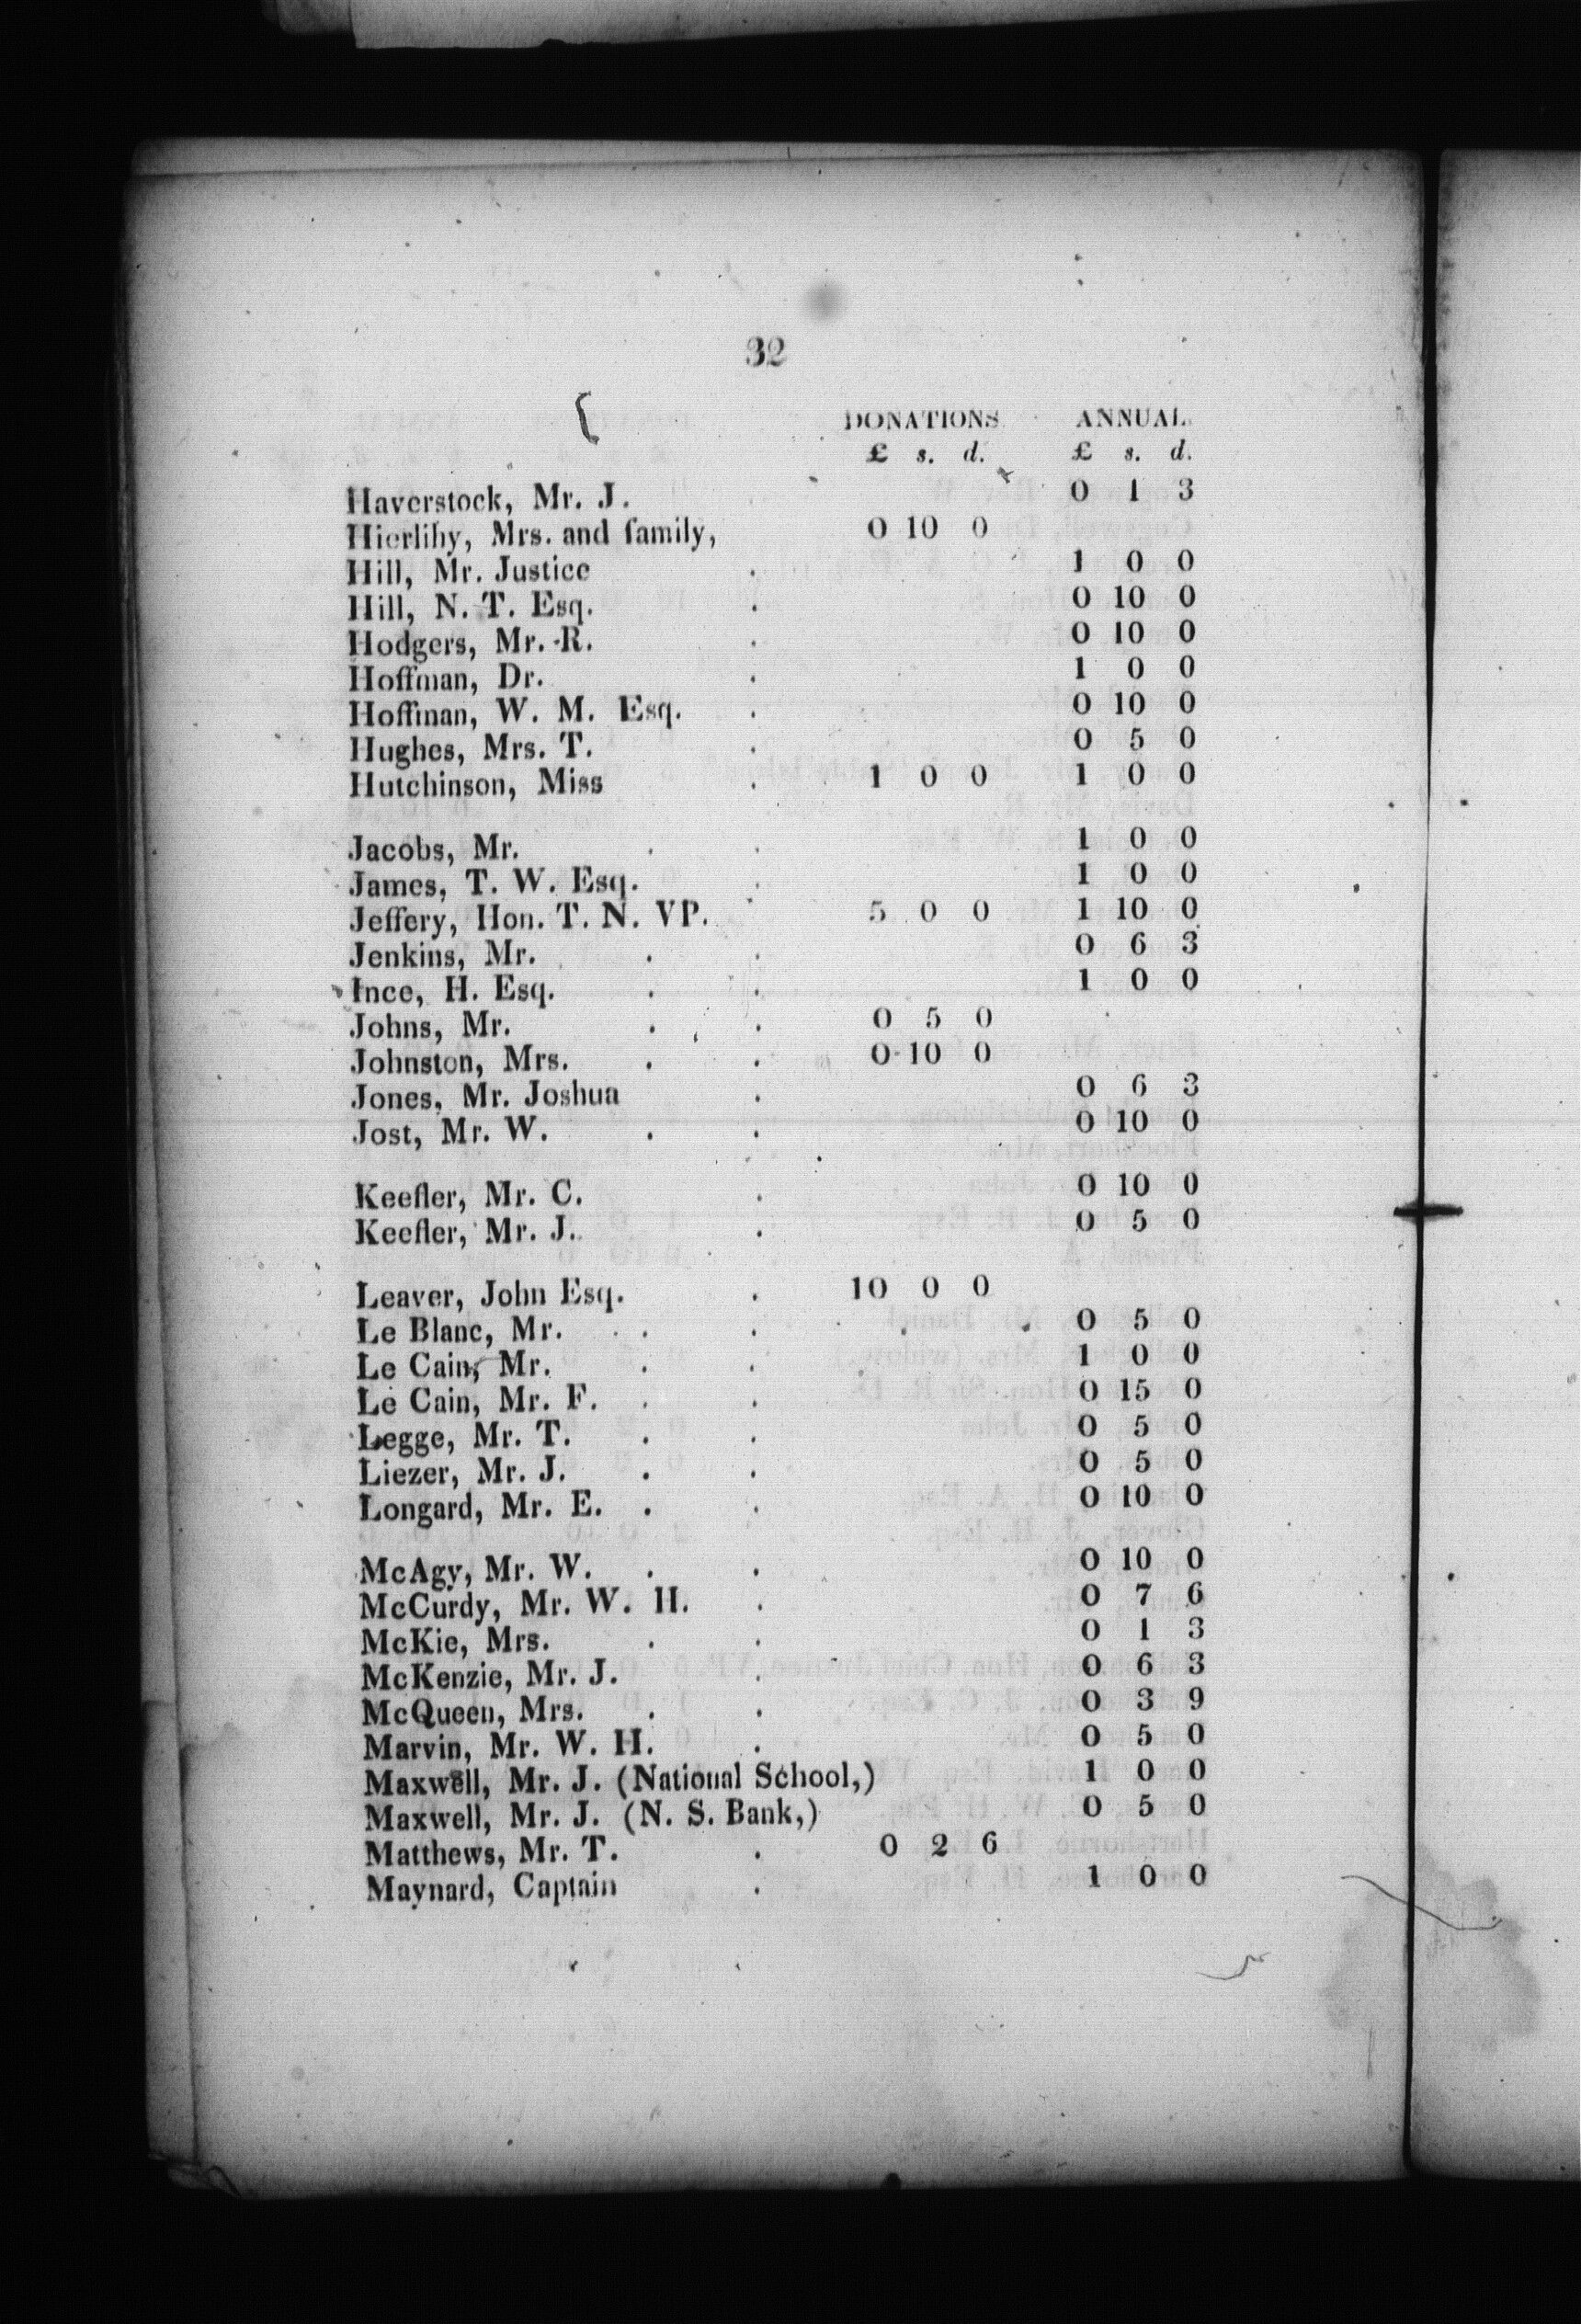 32
DONATIONS ANNUAL.
£ s. d. £ s. d.
Haverstock, Mr. J. 0 1 3
Hierlihy, Mrs. and family, 0 10 0
Hill, Mr. Justice . 1 0 0
Hill, N. T. Esq. . 0 10 0
Hodgers, Mr. R. . 0 10 0
Hoffman, Dr. . 1 0 0
Hoffman, W. M. Esq. . 0 10 0
Hughes, Mrs. T. . 0 5 0
Hutchinson, Miss . 1 0 0 1 0 0
Jacobs, Mr. . . 1 0 0
James, T. W. Esq. . 1 0 0
Jeffery, Hon. T. N. VP. . 5 0 0 1 10 0
Jenkins, Mr. . . 0 6 3
Ince, H. Esq. . . 1 0 0
Johns, Mr. . . 0 5 0
Johnston, Mrs. . . 0 10 0
Jones, Mr. Joshua . 0 6 3
Jost, Mr. W. . . 0 10 0
Keefler, Mr. C. . 0 10 0
Keefler, Mr. J. . 0 5 0
Leaver, John Esq. . 10 0 0
Le Blanc, Mr. . . 0 5 0
Le Cain, Mr. . . 1 0 0
Le Cain, Mr. F. . . 0 15 0
Legge, Mr. T. . . 0 5 0
Liezer, Mr. J. . . 0 5 0
Longard, Mr. E. . . 0 10 0
McAgy, Mr. W. . . 0 10 0
McCurdy, Mr. W. H. . 0 7 6
McKie, Mrs. . . 0 1 3
McKenzie, Mr. J. . 0 6 3
McQueen, Mrs. . . 0 3 9
Marvin, Mr. W. H. . 0 5 0
Maxwell, Mr. J. (National School,) 1 0 0
Maxwell, Mr. J. (N. S. Bank,) 0 5 0
Matthews, Mr. T. . 0 2 6
Maynard, Captain . 1 0 0